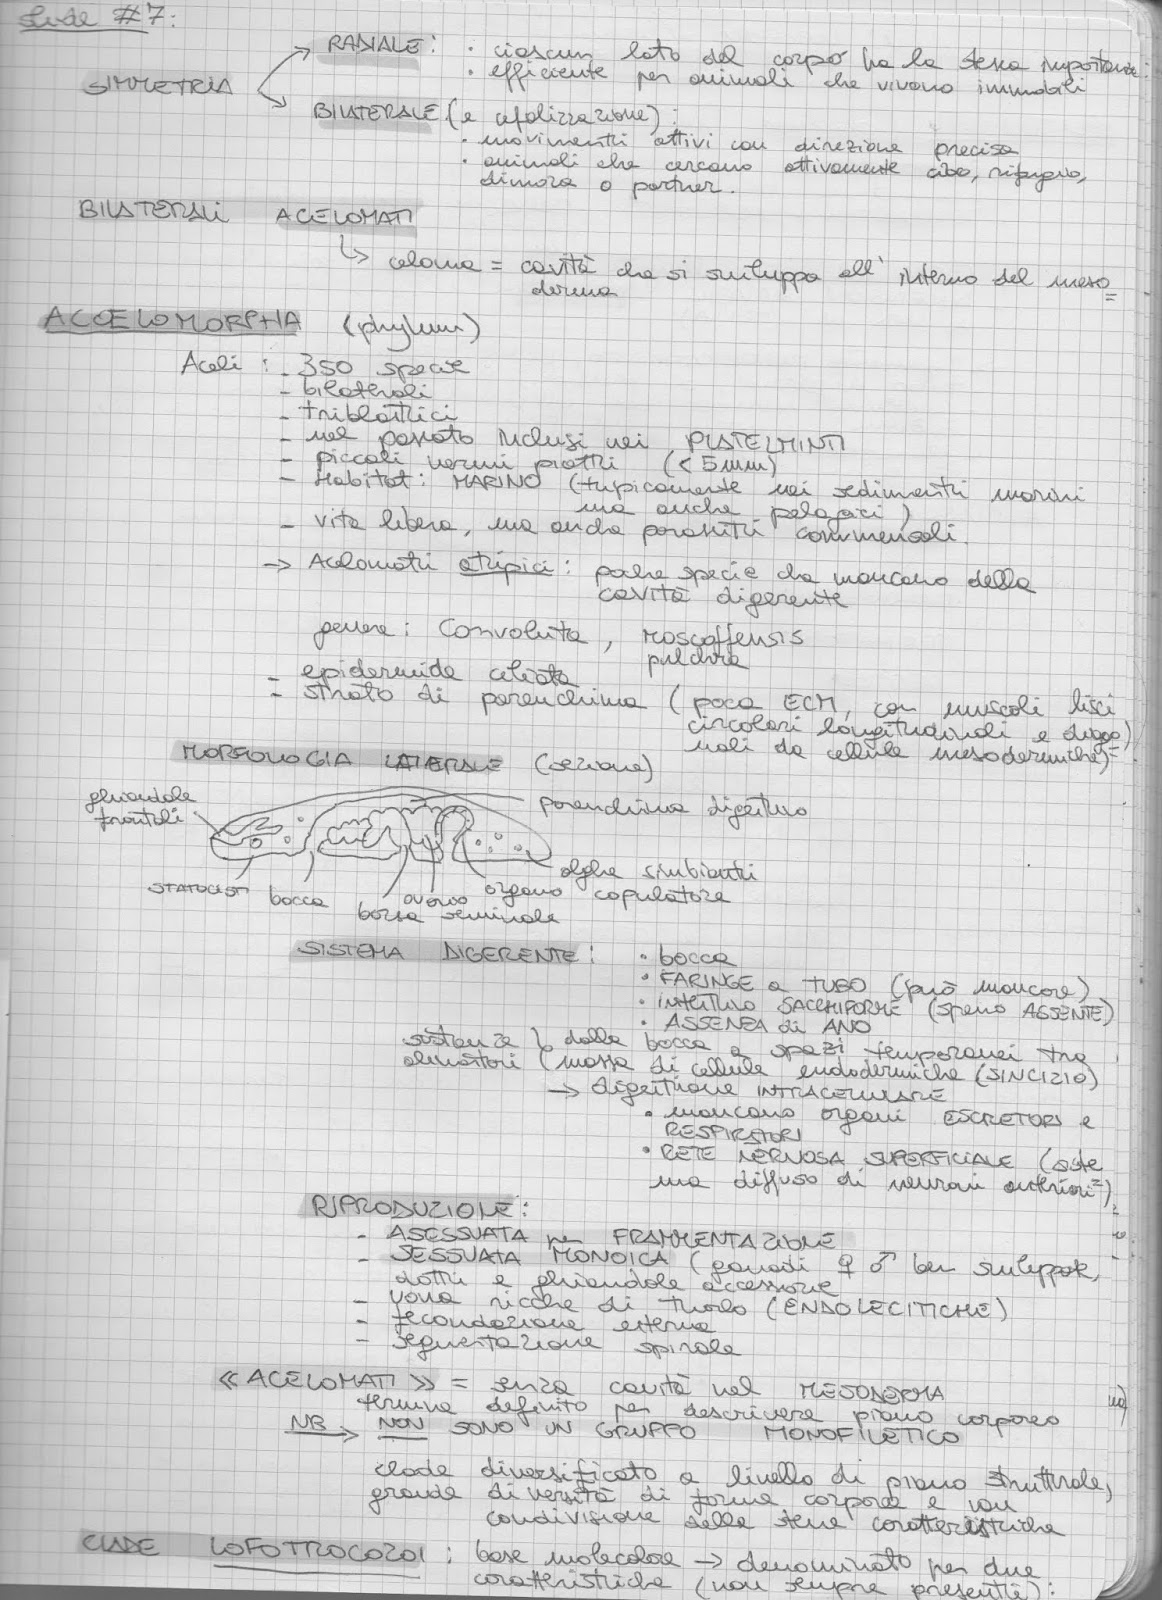 Slide #7:
RADIALE: · ciascun lato del corpo ha la stessa importanza:
· efficiente per animali che vivono immobili
SIMMETRIA
BILATERALE (e cefalizzazione):
· movimenti attivi con direzione precisa
· animali che cercano attivamente cibo, rifugio,
dimora o partner.
BILATERALI ACELOMATI
↳ celoma = cavità che si sviluppa all'interno del meso=
derma
ACCELOMORPHA (phylum)
Aceli: - 350 specie
- bilaterali
- triblastici
- nel passato inclusi nei PLATELMINTI
- piccoli vermi piatti (< 5mm)
- Habitat: MARINO (tipicamente nei sedimenti marini
ma anche pelagici)
- vita libera, ma anche parassiti commensali.
→ Acelomati atipici: poche specie che mancano della
cavità digerente
genere: Convoluta, roscoffensis
pulchra
- epidermide ciliata
- strato di parenchima (poca ECM, con muscoli lisci
circolari longitudinali e diago=
nali da cellule mesodermiche)
MORFOLOGIA LATERALE (sezione)
ghiandole
frontali
parenchima digestivo
alghe simbionti
STATOCISTI bocca ovario organo copulatore
borsa seminale
SISTEMA DIGERENTE: · bocca
· FARINGE a TUBO (può mancare)
· intestino SACCHIFORME (spesso ASSENTE)
· ASSENZA di ANO
sostanze ↳ dalla bocca a spazi temporanei tra
alimentari (massa di cellule endodermiche (SINCIZIO)
→ digestione INTRACELLULARE
· mancano organi ESCRETORI e
RESPIRATORI
· RETE NERVOSA SUPERFICIALE (siste=
ma diffuso di neuroni anteriori),
RIPRODUZIONE:
- ASESSUATA per FRAMMENTAZIONE
- SESSUATA MONOICA (gonadi ♀ ♂ ben sviluppate,
dotti e ghiandole accessorie
- uova ricche di tuorlo (ENDOLECITICHE)
- fecondazione esterna
- segmentazione spirale
«ACELOMATI» = senza cavità nel MESODERMA
termine definito per descrivere piano corporeo
NB → NON SONO UN GRUPPO MONOFILETICO
clade diversificato a livello di piano strutturale,
grande diversità di forme corporee e non
condivisione delle stesse caratteristiche
CLADE LOFOTROCOZOI: base molecolare → denominato per due
caratteristiche (non sempre presenti):